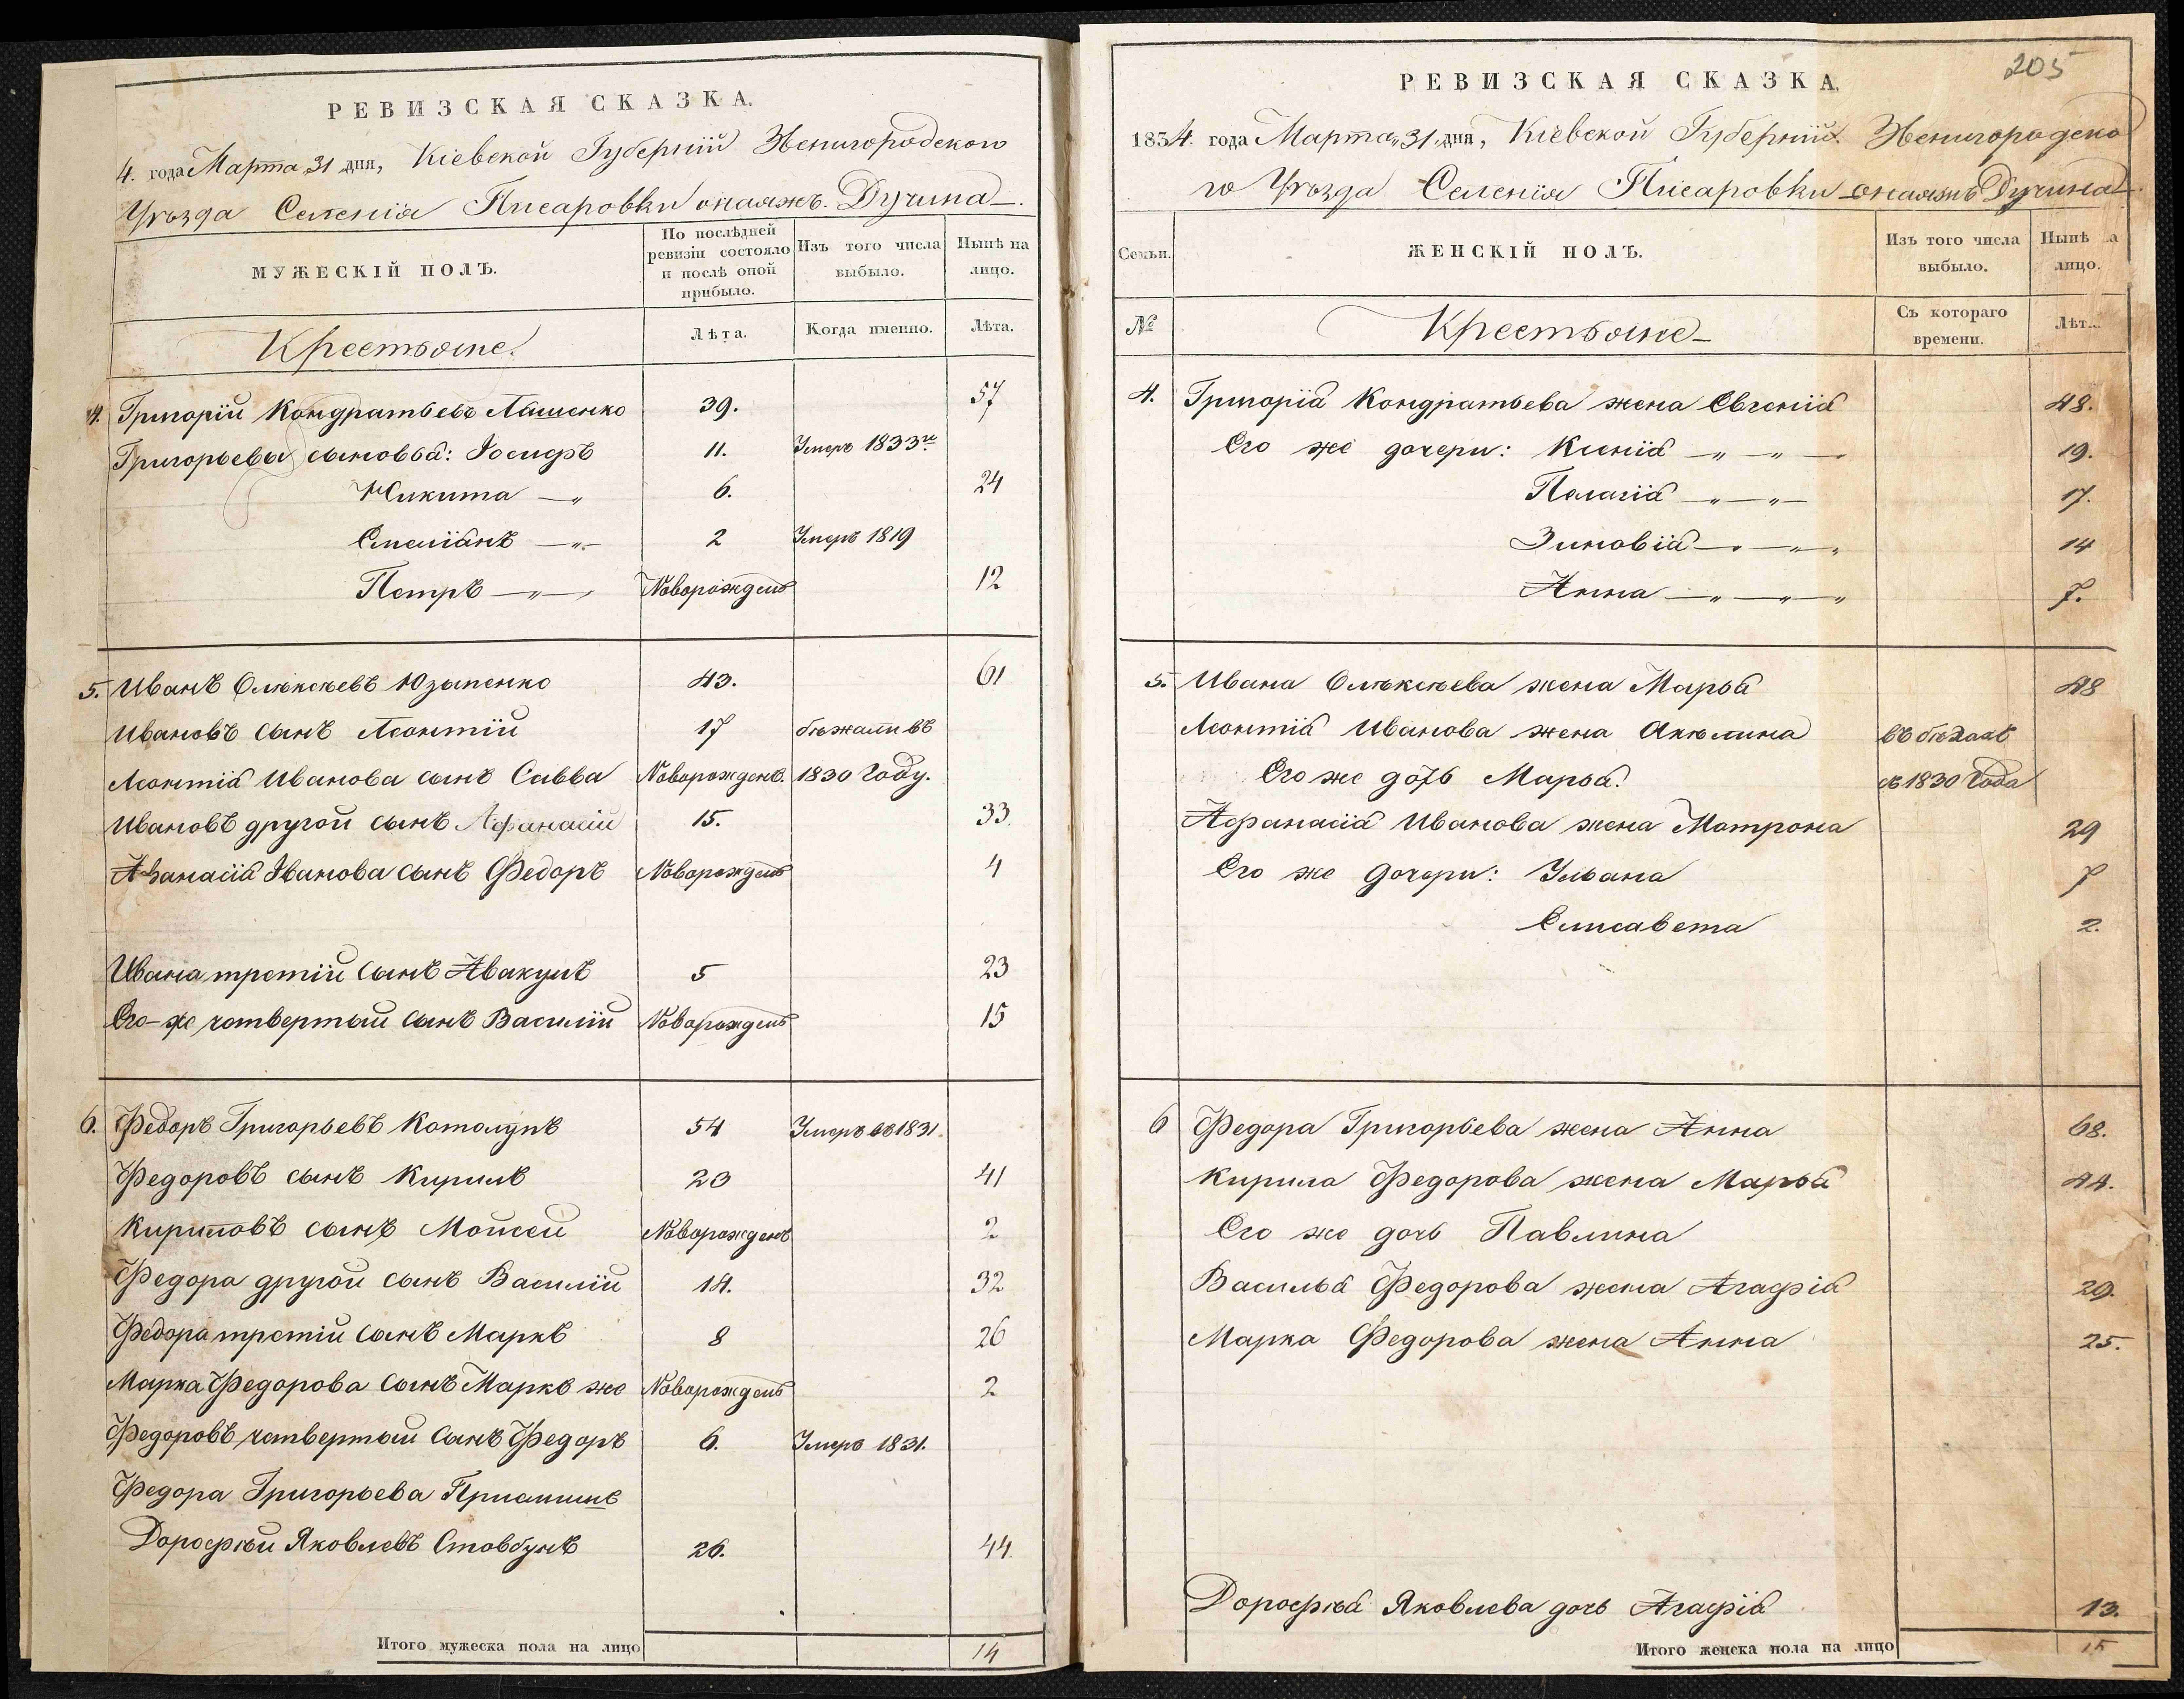 РЕВИЗСКАЯ СКАЗКА.
4. года Марта 31 дня, Кіевской Губерніи Звенигородского
Уѣзда Селенія Писаровки онаяжъ Дучина
МУЖЕСКІЙ ПОЛЪ.
По послѣдней ревизіи состояло и послѣ оной прибыло.
Изъ того числа выбыло.
Нынѣ на лицо.
Крестьяне.
Лѣта.
Когда именно.
Лѣта.
4. Григорій Кондратьевъ 39. 57
Григорьевы сыновья: Іосифъ 11. Умеръ 1833го
Никита —„ 6. 24
Емеліянъ —„— 2 Умеръ 1819
Петръ —„— Новорожденъ 12
5. Иванъ Олѣксѣевъ Юзыпенко 43. 61
Ивановъ сынъ Леонтій 17 бѣжали въ
Леонтія Иванова сынъ Савва Новорожденъ. 1830 Году.
Ивановъ другой сынъ Афанасій 15. 33.
Афанасія Іванова сынъ Федоръ Новорожденъ 4
Ивана третій сынъ Авакумъ 5 23
Его-же четвертый сынъ Василій Новорожденъ 15
6. Федоръ Григорьевъ Котолупъ 54 Умеръ въ 1831.
Федоровъ сынъ Кирилъ 23 41
Кириловъ сынъ Мойсей Новорожденъ 2
Федора другой сынъ Василій 14. 32
Федора третій сынъ Маркъ 8 26
Марка Федорова сынъ Маркъ же Новорожденъ 2
Федоровъ четвертый сынъ Федоръ 6. Умеръ 1831.
Федора Григорьева Приймышъ
Дорофѣй Яковлевъ Стовбунъ 26. 44.
Итого мужеска пола на лицо 14
205
РЕВИЗСКАЯ СКАЗКА.
1834. года Марта „31„ дня, Кіевской Губерніи. Звенигородско
го Уѣзда Селенія Писаровки онаяжъ Дучина
Семьи.
ЖЕНСКІЙ ПОЛЪ.
Изъ того числа выбыло.
Нынѣ на лицо.
№
Крестьяне
Съ котораго времени.
Лѣт...
4. Григорія Кондратьева жена Евгенія 48.
Его же дочери: Ксенія —„—„— 19.
Пелагія —„—„— 17.
Зиновія —„—„ 14
Анна —„—„—„ 7.
5. Ивана Олѣксѣева жена Марья 48
Леонтія Иванова жена Акѣлина въ бѣгахъ
Его же дочь Марья. съ 1830 Года
Афанасія Иванова жена Матрона 29
Его же дочери: Ульана 7
Елисавета 2.
6 Федора Григорьева жена Анна 68.
Кирила Федорова жена Марья 44.
Его же дочь Павлина
Василья Федорова жена Агафія 29.
Марка Федорова жена Анна 25.
Дорофѣя Яковлева дочь Агафія 13.
Итого женска пола на лицо 15